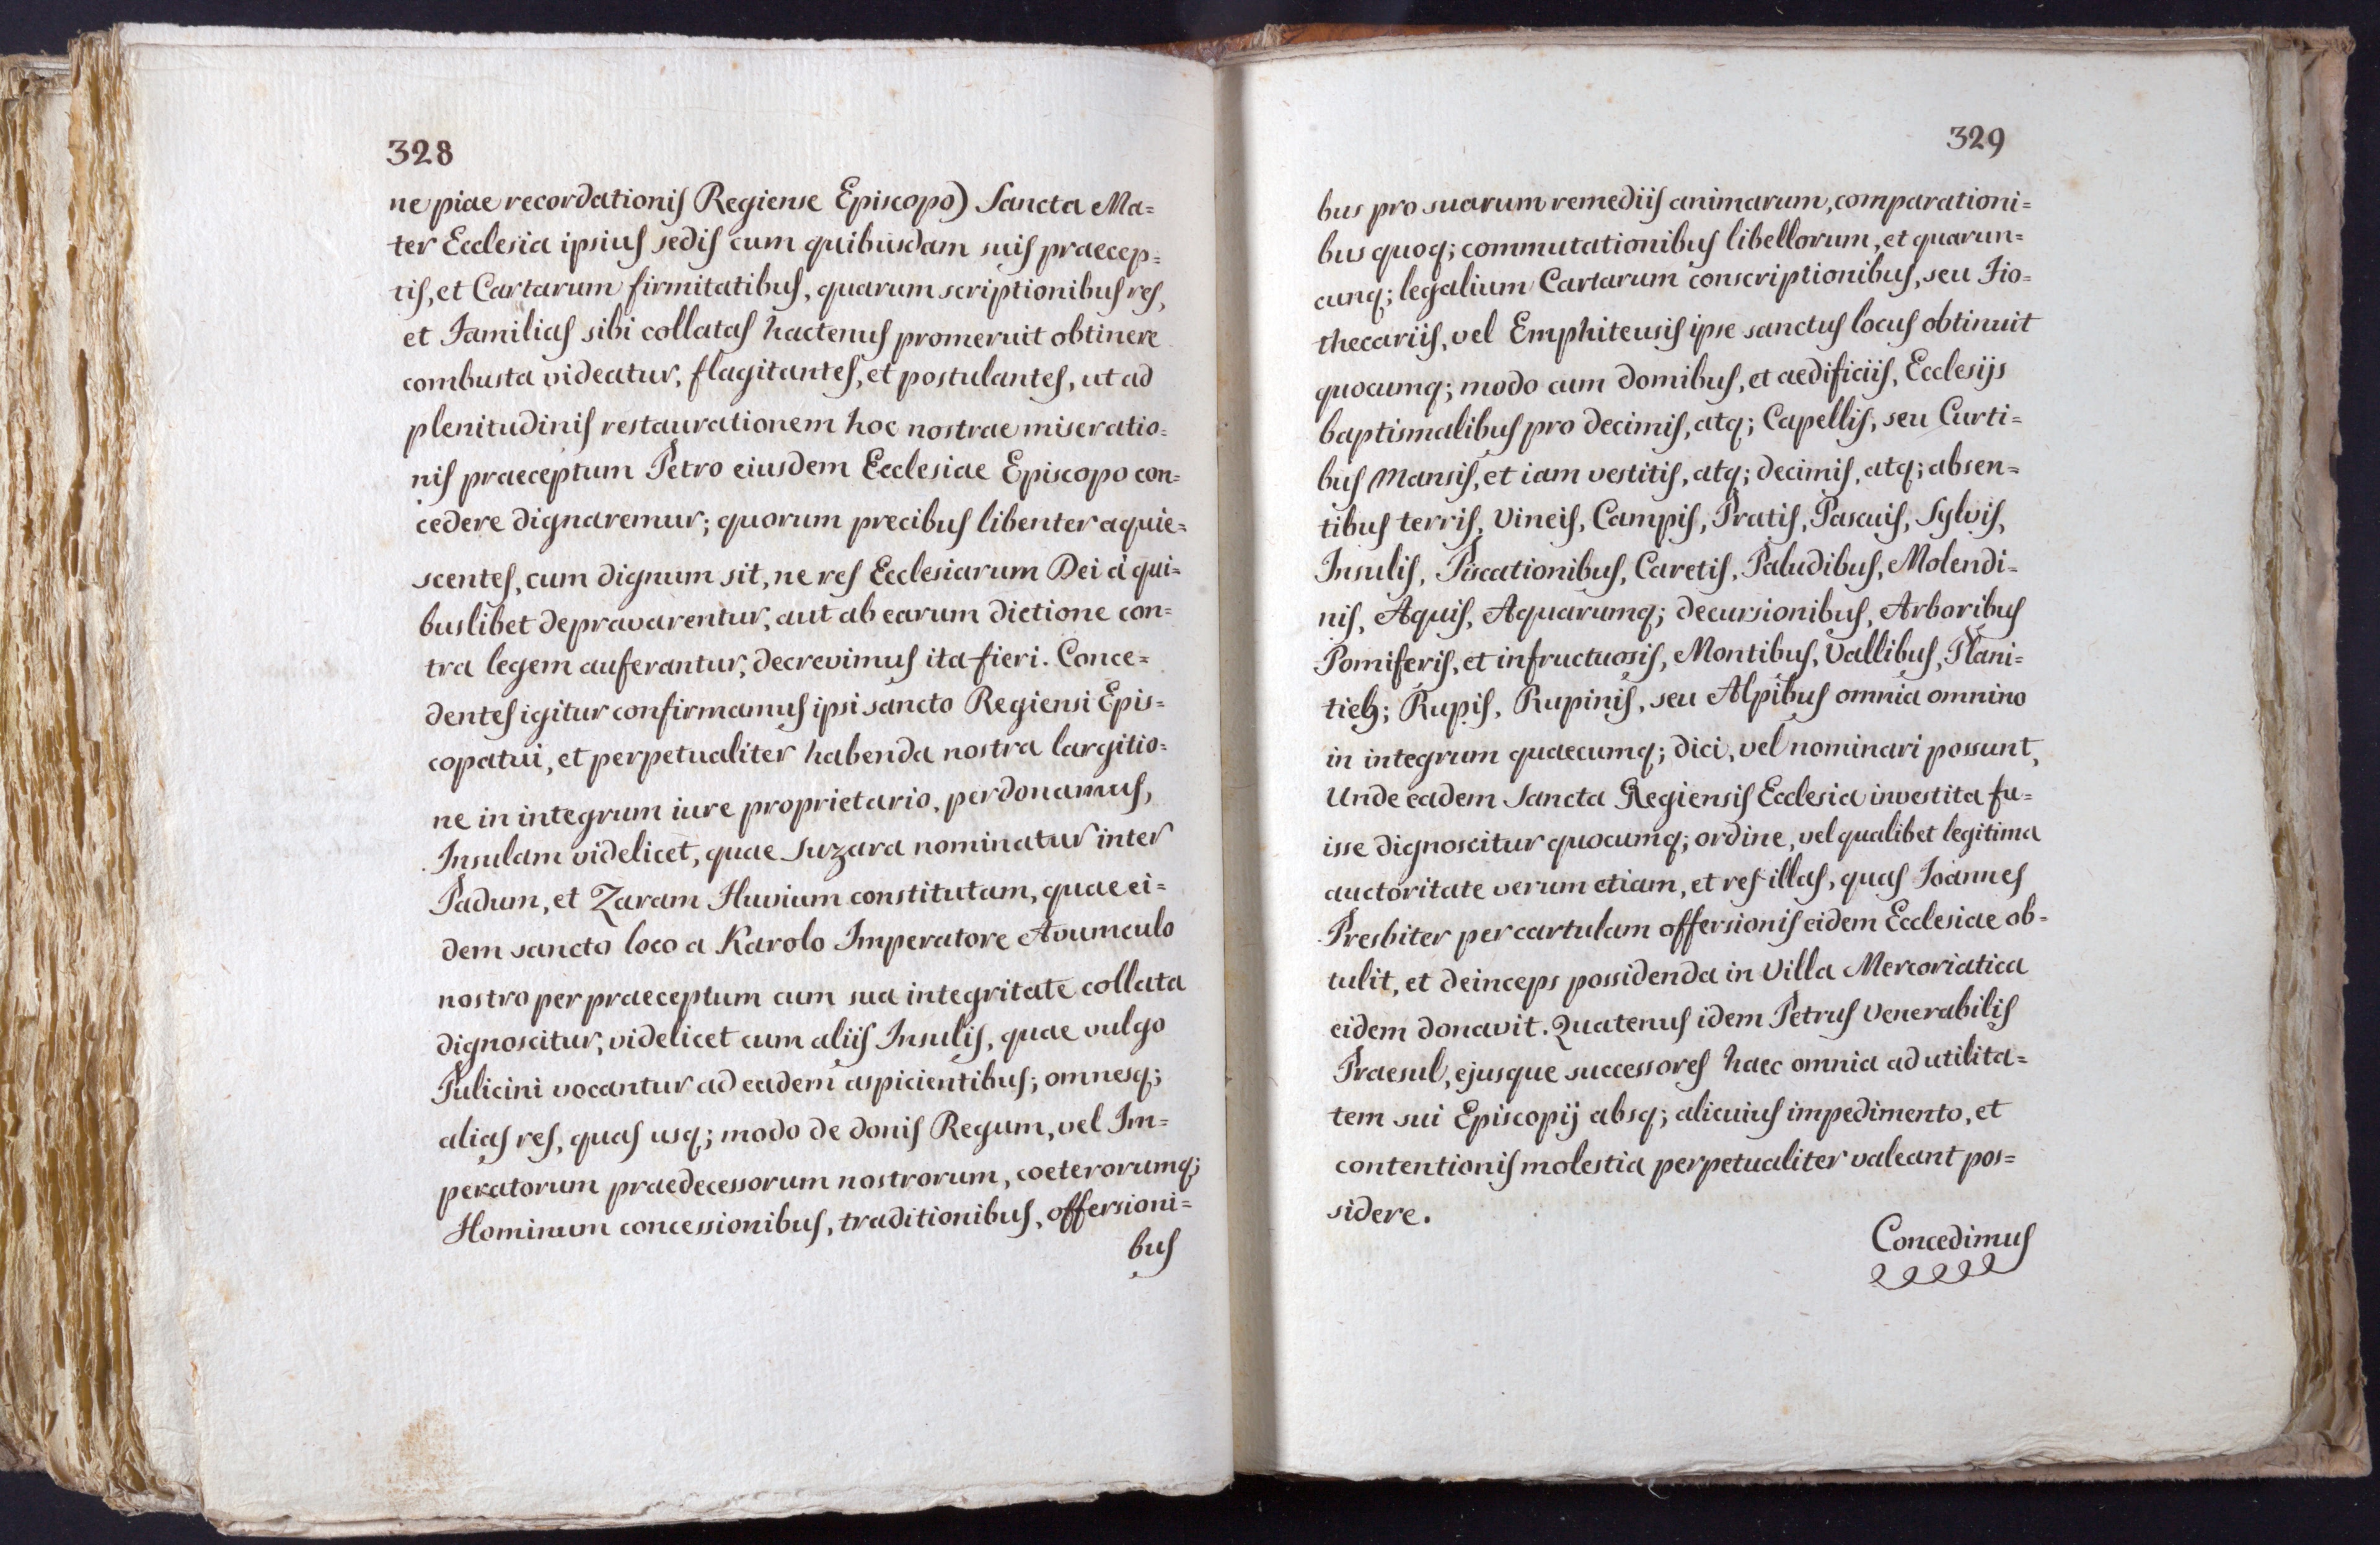 328
ne piae recordationis Regiense Episcopo) Sancta Ma=
ter Ecclesia ipsius sedis cum quibusdam suis praecep=
tis, et Cartarum firmitatibus, quarum scriptionibus res,
et Familias sibi collatas hactenus promeruit obtinere
combusta videatur, flagitantes, et postulantes, ut ad
plenitudinis restaurationem hoc nostrae miseratio=
nis praeceptum Petro eiusdem Ecclesiae Episcopo con=
cedere dignaremur; quorum precibus libenter aquie=
scentes, cum dignum sit, ne res Ecclesiarum Dei à qui=
buslibet depravarentur, aut ab earum dictione con=
tra legem auferantur, decrevimus ita fieri. Conce=
dentes igitur confirmamus ipsi sancto Regiensi Epis=
copatui, et perpetualiter habenda nostra largitio=
ne in integrum iure proprietario, perdonamus,
Insulam videlicet, quae Suzara nominatur inter
Padum, et Zaram Fluvium constitutam, quae ei=
dem sancto loco a Karolo Imperatore Avumculo
nostro per praeceptum cum sua integritate collata
dignoscitur, videlicet cum aliis Insulis, quae vulgo
Pulicini vocantur ad eadem aspicientibus; omnesq;
alias res, quas usq; modo de donis Regum, vel Im=
peratorum praedecessorum nostrorum, coeterorumq;
Hominum concessionibus, traditionibus, offersioni=
bus
329
bus pro suarum remediis animarum, comparationi=
bus quoq; commutationibus libellorum, et quarun=
cunq; legalium Cartarum conscriptionibus, seu Fio=
thecariis, vel Emphiteusis ipse sanctus locus obtinuit
quocumq; modo cum domibus, et aedificiis, Ecclesijs
baptismalibus pro decimis, atq; Capellis, seu Curti=
bus Mansis, et iam vestitis, atq; decimis, atq; absen=
tibus terris, Vineis, Campis, Pratis, Pascuis, Sylvis,
Insulis, Piscationibus, Caretis, Paludibus, Molendi=
nis, Aquis, Aquarumq; decursionibus, Arboribus
Pomiferis, et infructuosis, Montibus, Vallibus, Plani=
tieb; Rupis, Rupinis, seu Alpibus omnia omnino
in integrum quaecumq; dici, vel nominari possunt,
Unde eadem Sancta Regiensis Ecclesia investita fu=
isse dignoscitur quocumq; ordine, vel qualibet legitima
auctoritate verum etiam, et res illas, quas Ioannes
Presbiter per cartulam offersionis eidem Ecclesiae ob=
tulit, et deinceps possidenda in Villa Mercoriatica
eidem donavit. Quatenus idem Petrus Venerabilis
Praesul, ejusque successores haec omnia ad utilita=
tem sui Episcopij absq; alicuius impedimento, et
contentionis molestia perpetualiter valeant pos=
sidere.
Concedimus